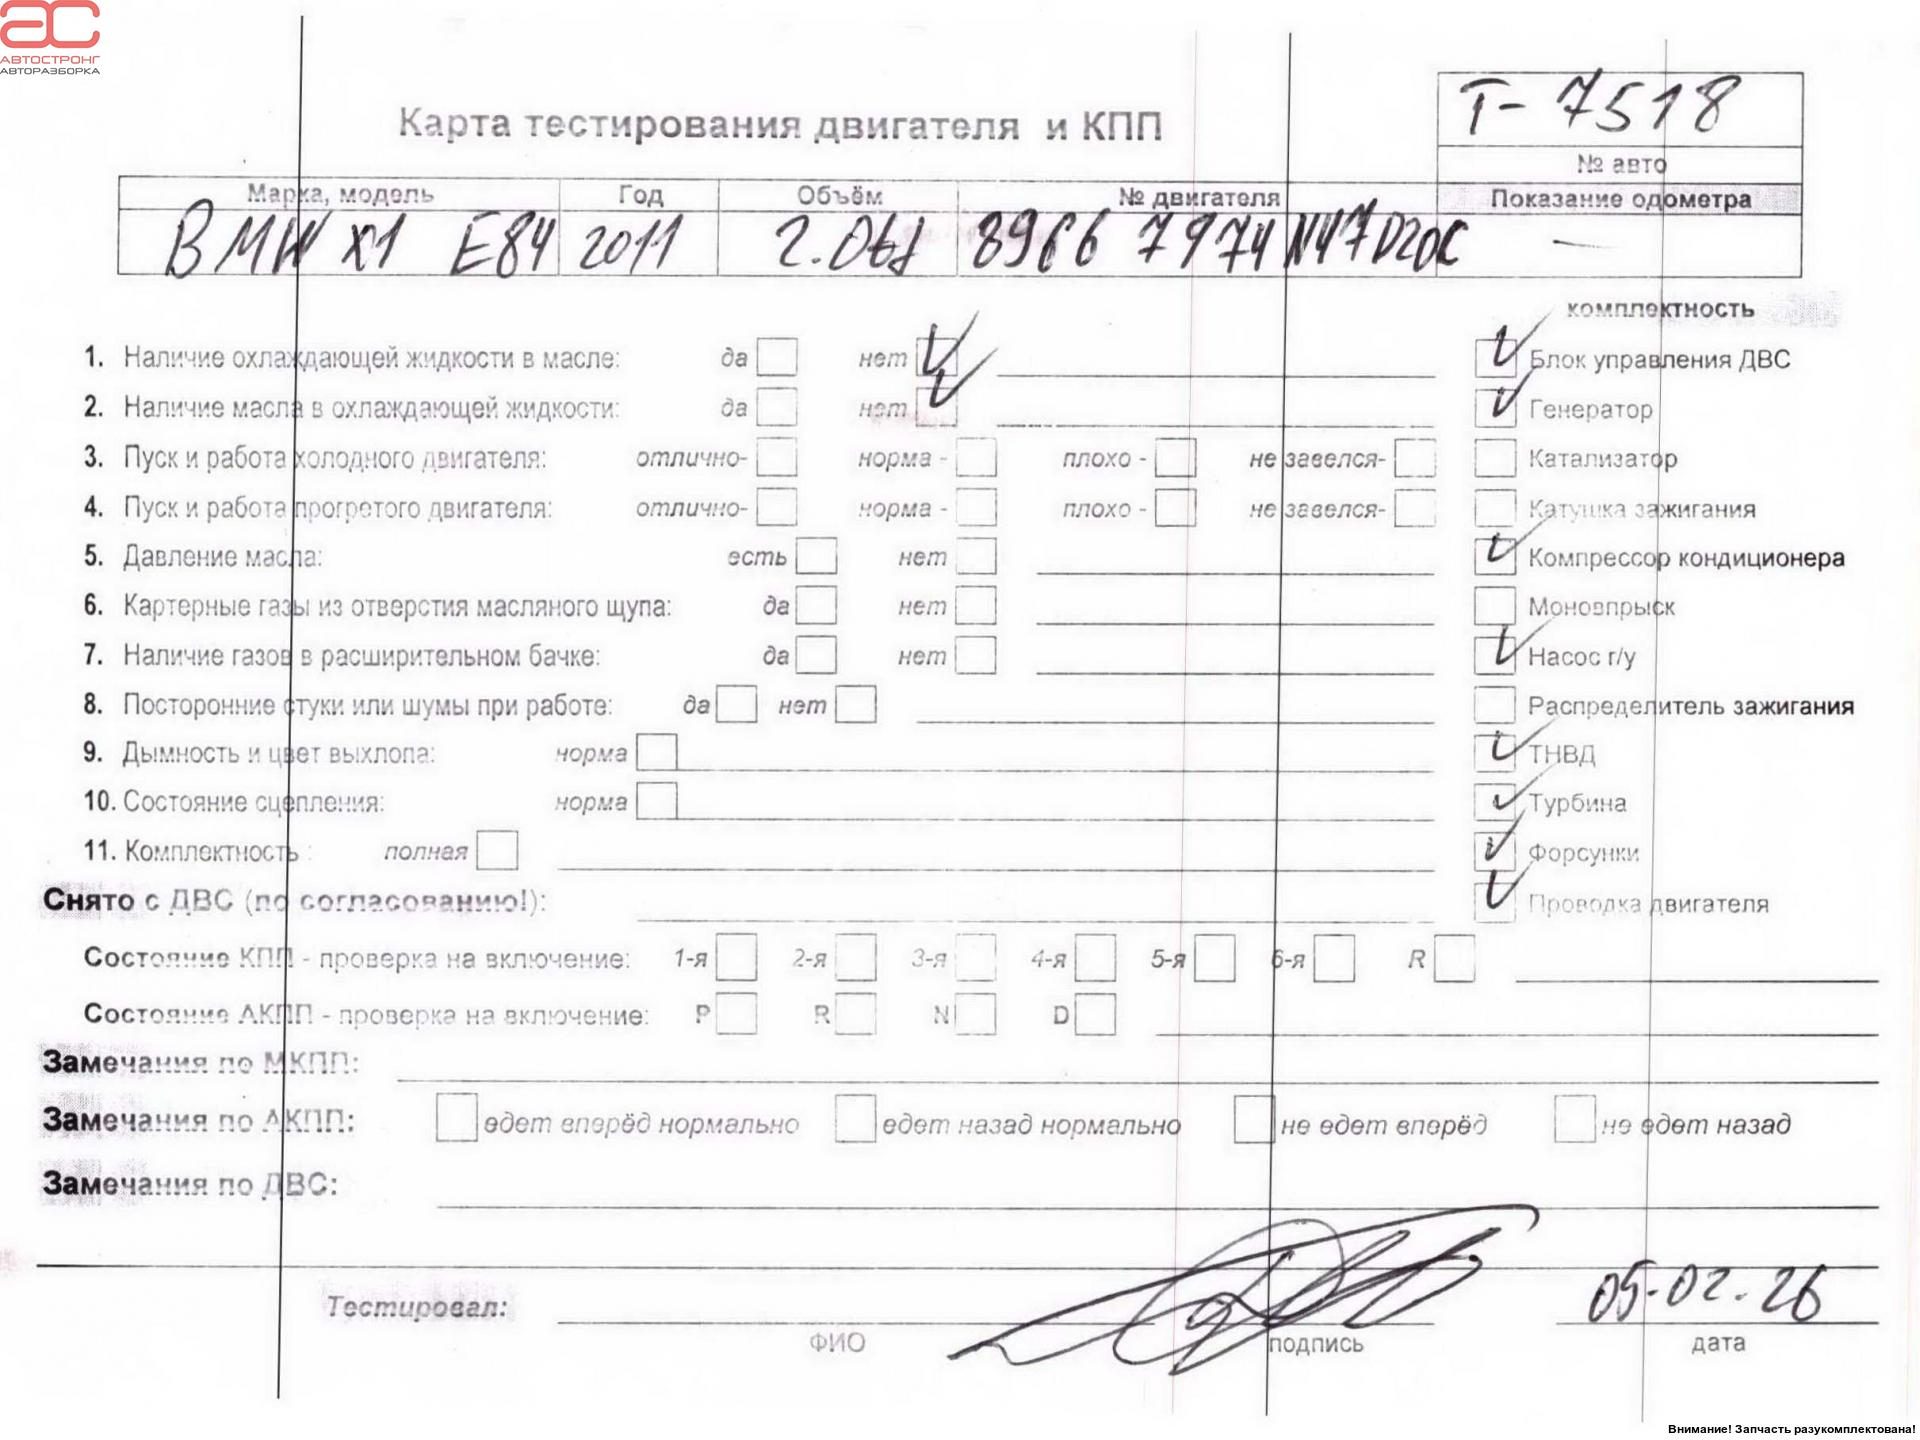 АС
АВТОСТРОНГ
АВТОРАЗБОРКА
Т- 7518
Карта тестирования двигателя и КПП
№ авто
Марка, модель Год Объём № двигателя Показание одометра
BMW X1 E84 2011 2.0td 8966 7974 N47D20C —
комплектность
1. Наличие охлаждающей жидкости в масле: да нет Блок управления ДВС
2. Наличие масла в охлаждающей жидкости: да нет Генератор
3. Пуск и работа холодного двигателя: отлично- норма - плохо - не завелся- Катализатор
4. Пуск и работа прогретого двигателя: отлично- норма - плохо - не завелся- Катушка зажигания
5. Давление масла: есть нет Компрессор кондиционера
6. Картерные газы из отверстия масляного щупа: да нет Моновпрыск
7. Наличие газов в расширительном бачке: да нет Насос г/у
8. Посторонние стуки или шумы при работе: да нет Распределитель зажигания
9. Дымность и цвет выхлопа: норма ТНВД
10. Состояние сцепления: норма Турбина
11. Комплектность : полная Форсунки
Снято с ДВС (по согласованию!): Проводка двигателя
Состояние КПП - проверка на включение: 1-я 2-я 3-я 4-я 5-я 6-я R
Состояние АКПП - проверка на включение: P R N D
Замечания по МКПП:
Замечания по АКПП: едет вперёд нормально едет назад нормально не едет вперёд не едет назад
Замечания по ДВС:
Тестировал: 05.02.26
ФИО подпись дата
Внимание! Запчасть разукомплектована!